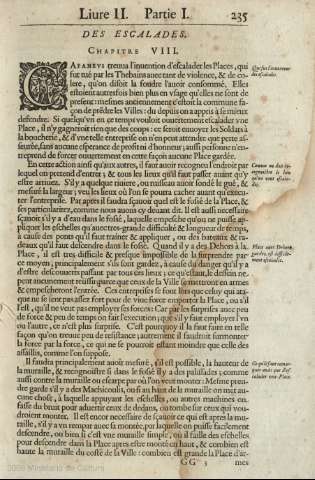 Liure II. Partie I. 235
DES ESCALADES.
CHAPITRE VIII.
CAPANEVS treuua l'inuention d'escalader les Places, qui
fut tué par les Thebains auec tant de violence, & de co-
lere, qu'on disoit la foudre l'auoir consommé. Elles
estoient autresfois bien plus en vsage qu'elles ne sont de
present: mesmes anciennement c'estoit la commune fa-
çon de prendre les Villes: du depuis on a appris à se mieux
defendre. Si quelqu'vn en ce temps vouloit ouuertement escalader vne
Place, il n'y gagneroit rien que des coups: ce seroit enuoyer les Soldats à
la boucherie, & d'vne telle entreprise on n'en peut attendre que perte as-
seurée, sans aucune esperance de profit ni d'honneur; aussi personne n'en-
treprend de forcer ouuertement en cette façon aucune Place gardée.
En cette action ainsi qu'aux autres, il faut auoir recognu l'endroit par
lequel on pretend d'entrer; & tous les lieux qu'il faut passer auant qu'y
estre arriuez. S'il y a quelque riuiere, ou ruisseau auoir sondé le gué, &
mesuré la largeur; veu les lieux où l'on se pourra cacher auant qu'execu-
ter l'entreprise. Par apres il faudra sçauoir quel est le fossé de la Place, &
ses particularitez, comme nous auons cy deuant dit. Il est aussi necessaire
sçauoir s'il y a d'eau dans le fossé, laquelle empesche qu'on ne puisse ap-
pliquer les eschelles qu'auec tres-grande difficulté & longueur de temps,
à cause des ponts qu'il faut trainer & appliquer, ou des batteaux & ra-
deaux qu'il faut descendre dans le fossé. Quand il y a des Dehors à la
Place, il est tres difficile & presque impossible de la surprendre par
ce moyen; principalement s'ils sont gardez, à cause du danger qu'il y a
d'estre descouuerts passant par tous ces lieux; ce qu'estant, le dessein ne
peut aucunement reüssir parce que ceux de la Ville se mettront en armes
& empescheront l'entrée. Ces entreprises se font lors que celuy qui atta-
que ne se sent pas assez fort pour de viue force emporter la Place, ou s'il
l'est, qu'il ne veut pas employer ses forces: Car par les surprises auec peu
de force & peu de temps on fait l'execution; que s'il y faut employer l'vn
ou l'autre, ce n'est plus surprise. C'est pourquoy il la faut faire en telle
façon qu'on treuue peu de resistance; autrement il faudroit surmonter
la force par la force, ce qui ne se pourroit estant moindre que celle des
assaillis, comme l'on suppose.
Il faudra principalement auoir mesuré, s'il est possible, la hauteur de
la muraille, & recognoistre si dans le fossé il y a des palissades; comme
aussi contre la muraille ou escarpe par où l'on veut monter: Mesme pren-
dre garde s'il y a des Machicoulis, ou si au haut de la muraille on met au-
cune chose, à laquelle appuyant les eschelles, ou autres machines on
fasse du bruit pour aduertir ceux de dedans, ou tombe sur ceux qui vou-
droient monter. Il est encor necessaire de sçauoir ce qui est apres la mu-
raille, s'il y a vn rempar auec sa montée, par laquelle on puisse facilement
descendre, ou bien si c'est vne muraille simple, où il faille des eschelles
pour descendre dans la Place apres estre monté en haut, & combien est
haute la muraille du costé de la Ville: combien est grande la Place d'ar-
GG 3 mes
Comme on doit re-
cognoistre le lieu
qu'on veut escala-
der.